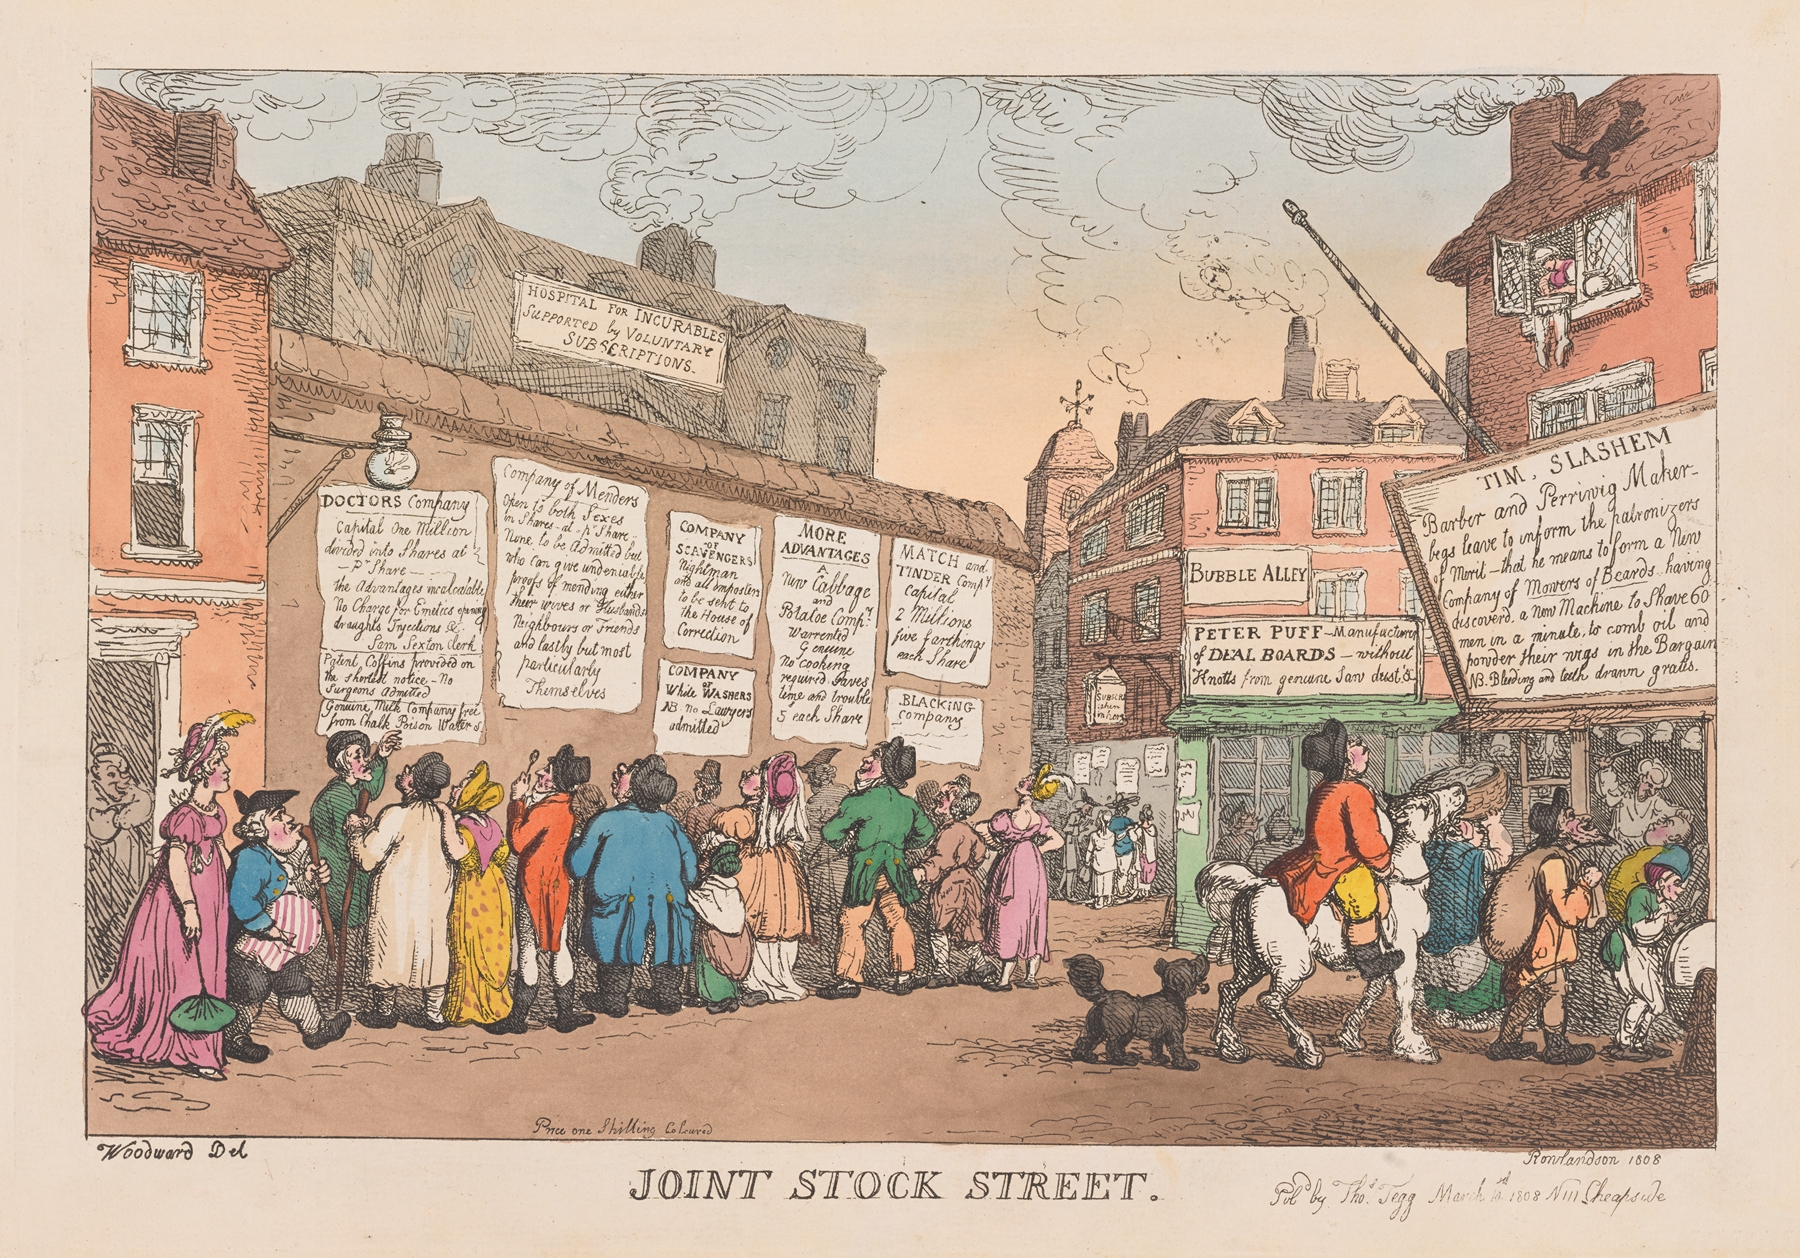 HOSPITAL FOR INCURABLES
Supported by Voluntary
SUBSCRIPTIONS.
DOCTORS Company
Capital One Million
divided into Shares at
pr Share
the Advantages incalculable
No Charge for Emetics opening
draughts Injections &c.
Sam Sexton Clerk
Patent Coffins provided on
the shortest notice - No
Surgeons Admitted
Genuine Milk Company free
from Chalk Poison Water &c.
Company of Menders
Open to both Sexes
in Shares - at - pr Share.
None to be Admitted but
who can give undeniable
proofs of mending either
their wives or Husbands
Neighbours or Friends
and lastly but most
particularly
Themselves
COMPANY
OF
SCAVENGERS
Nightman
and all imposters
to be sent to
the House of
Correction
COMPANY
OF
White WASHERS
NB. No Lawyers
admitted
MORE
ADVANTAGES
A
New Cabbage
and
Potatoe Compy.
Warrented
Genuine
No cooking
required saves
time and trouble
5 each Share
MATCH and
TINDER Compy
Capital
2 Millions
five farthings
each Share
BLACKING
Company
BUBBLE ALLEY
PETER PUFF - Manufacturer
of DEAL BOARDS - without
Knotts from genuine Saw dust &c
SUBSCRI
TIM. SLASHEM
Barber and Perriwig Maker -
begs leave to inform the patronizers
of Merit - that he means to form a New
Company of Mowers of Beards - having
discoverd a new Machine to Shave 60
men in a minute. to comb oil and
powder their wigs in the Bargain
NB. Bleeding and teeth drawn gratis.
Price one Shilling Coloured
Woodward Del
Rowlandson 1808
JOINT STOCK STREET.
Pubd by Thos Tegg March 1808 N111 Cheapside